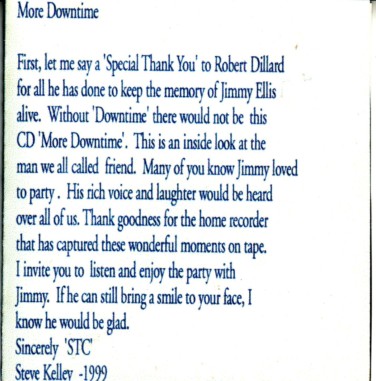 More Downtime
First, let me say a 'Special Thank You' to Robert Dillard
for all he has done to keep the memory of Jimmy Ellis
alive. Without 'Downtime' there would not be this
CD 'More Downtime'. This is an inside look at the
man we all called friend. Many of you know Jimmy loved
to party . His rich voice and laughter would be heard
over all of us. Thank goodness for the home recorder
that has captured these wonderful moments on tape.
I invite you to listen and enjoy the party with
Jimmy. If he can still bring a smile to your face, I
know he would be glad.
Sincerely 'STC'
Steve Kelley -1999